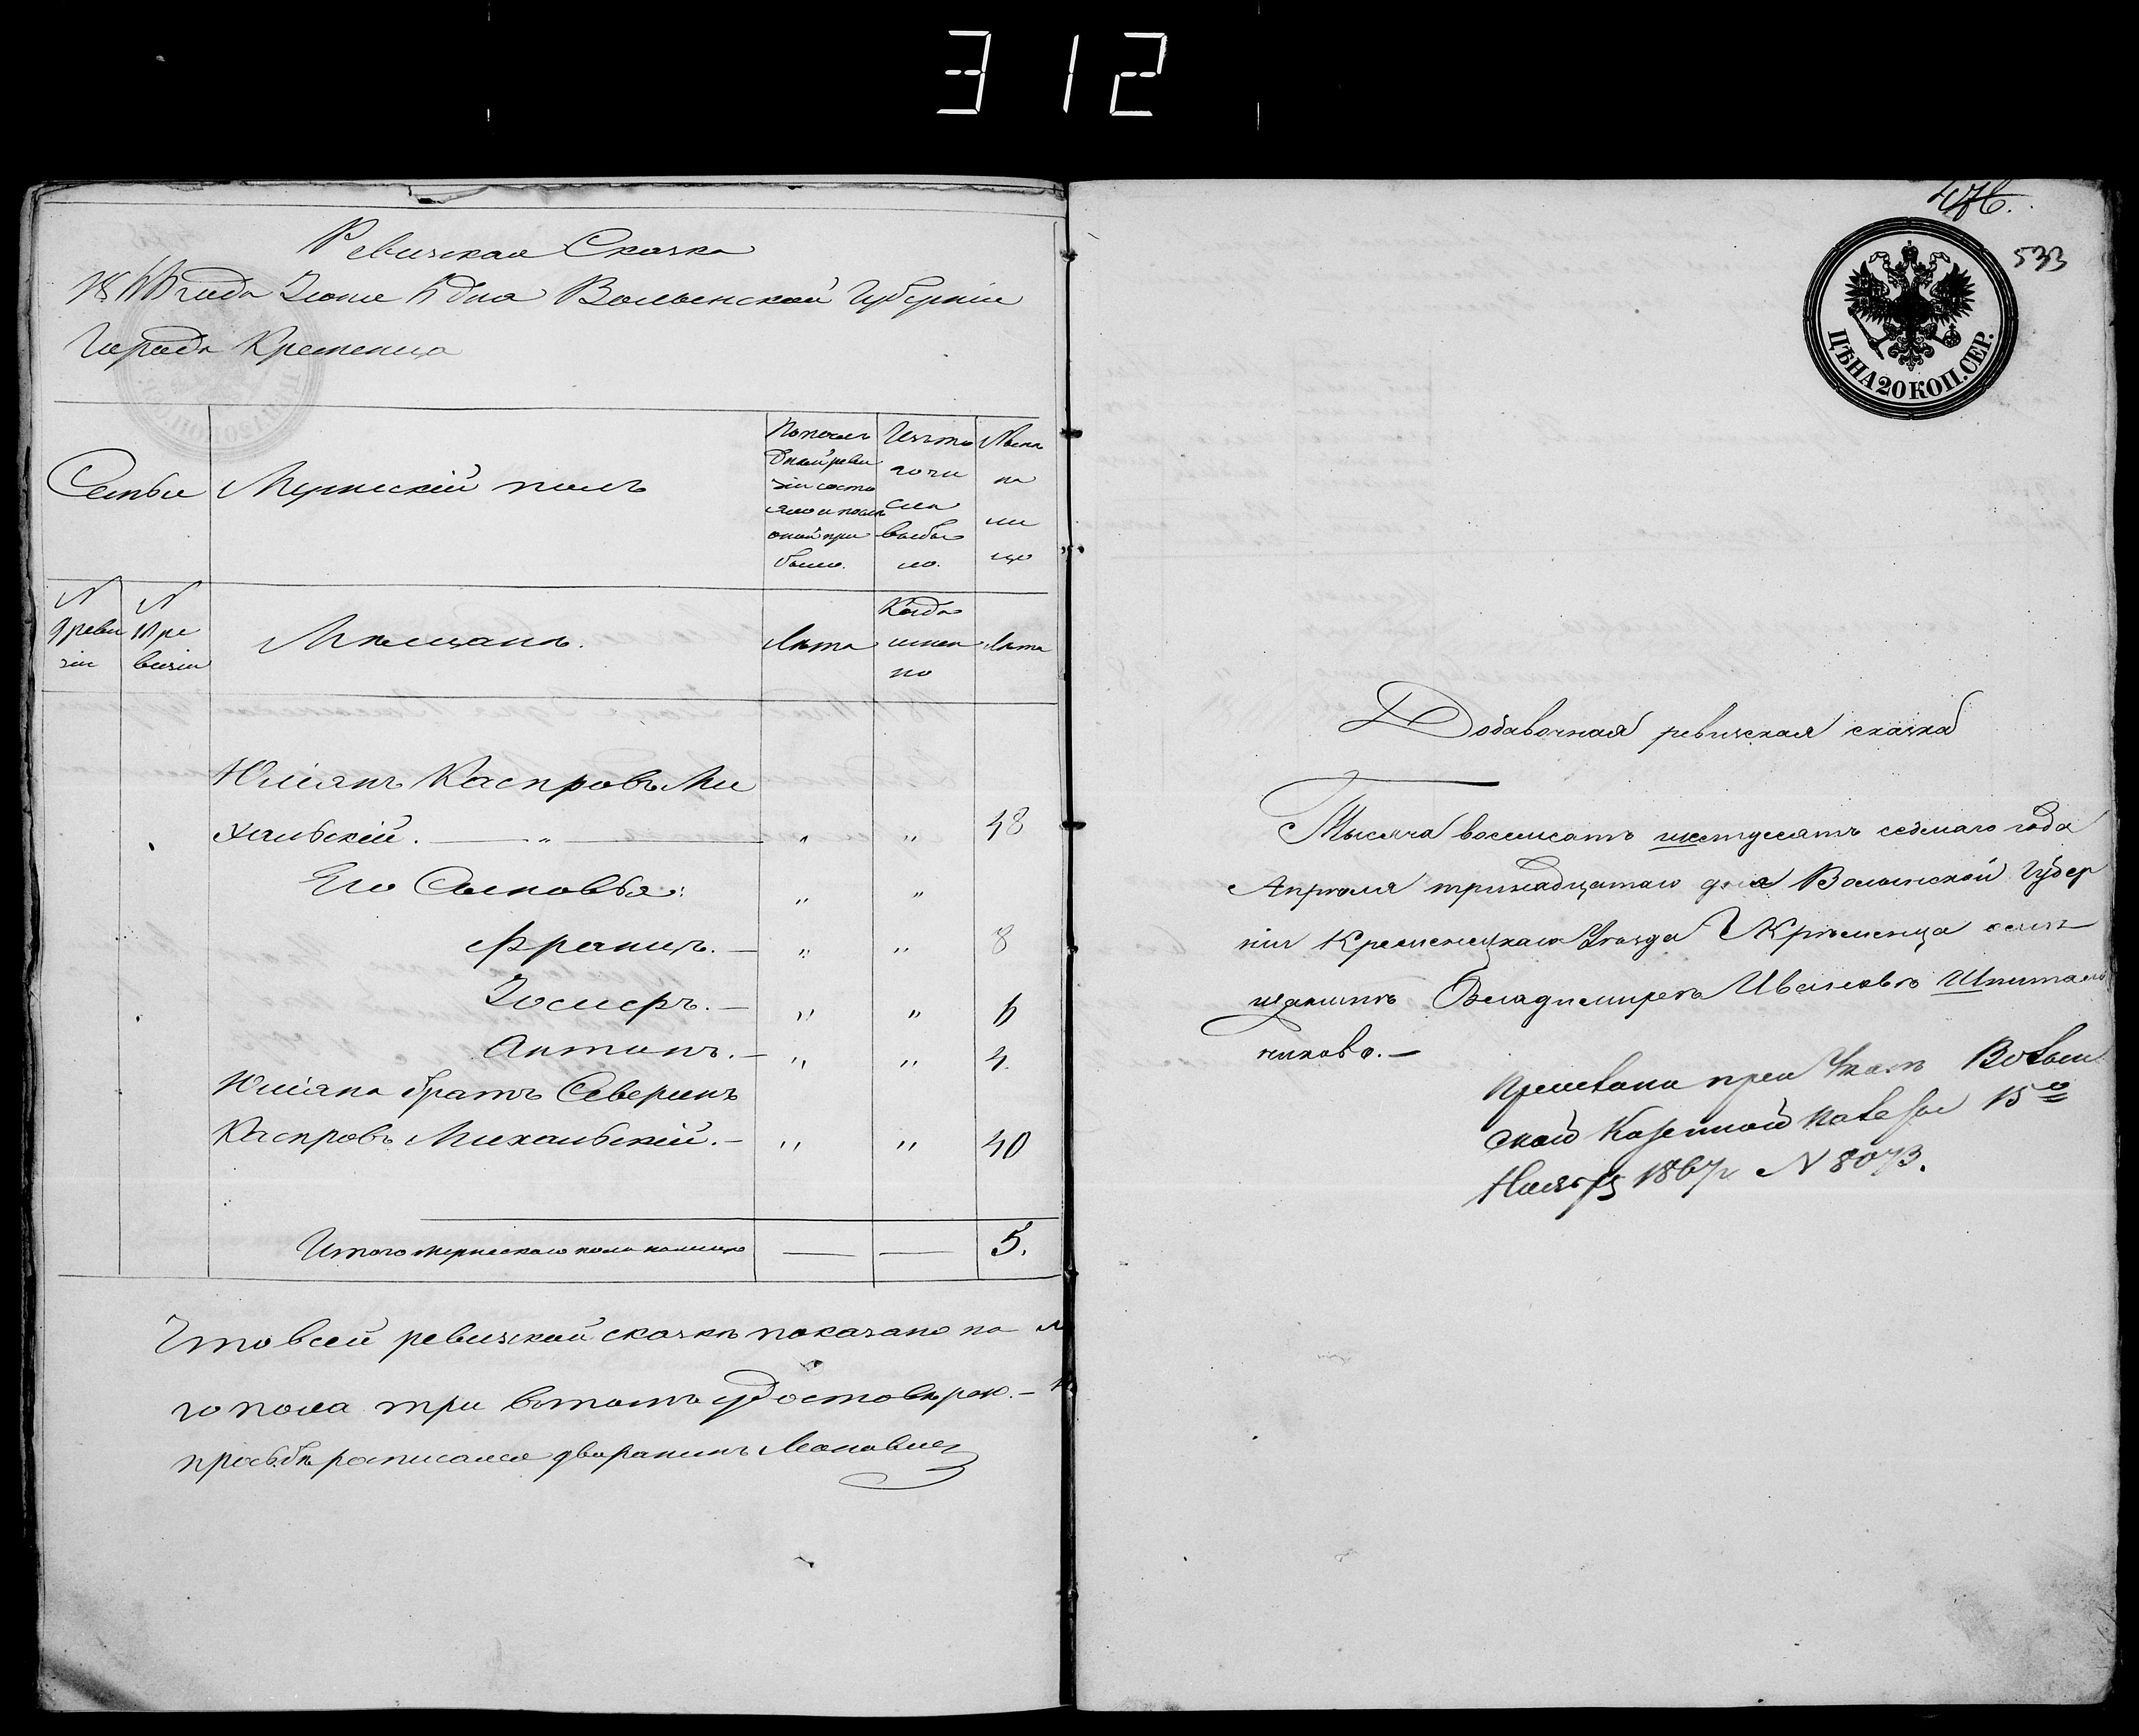 312
Ревизская Сказка
года Июня 6 дня Волынской Губернiи
Города Кременца
Семьи
Мужескiй полъ
По послѣ
дней реви
зiи состо
яло и послѣ
оной при
было.
Изъ то
го чи
сла
выбы
ло.
Нынѣ
на
ли
цо
N
9 реви
зiи
N
10 ре
визiи
Мѣщанъ.
Лѣта
Когда
имен
но
Лѣта
Юлiянъ Каспровъ Ми
хальскiй. — „ — „ „ 48
Его Сыновья: „ „
Францъ. — „ „ 8
Iосифъ. — „ „ 6
Антонъ. — „ „ 4
Юлiяна братъ Северинъ
Каспровъ Михальскiй. — „ „ 40
Итого мужескаго пола налицо — — 5.
Что в сей ревизской сказкѣ показано на
го пола три в томъ удостовѣряю. —
просьбѣ росписался дворянинъ
533
ЦѢНА 20 КОП. СЕР.
Добавочная ревизская сказка
Тысяча восемсотъ шестдесятъ седмаго года
Апрѣля тринадцатаго дня Волынской Губер
нiи Кременецкаго Уѣзда Г. Кременца о мѣ
щанинѣ Владимирѣ Ивановѣ
никовѣ. —
при Указѣ Волын
ской Казенной Палаты 15го
1867 г. N 8073.